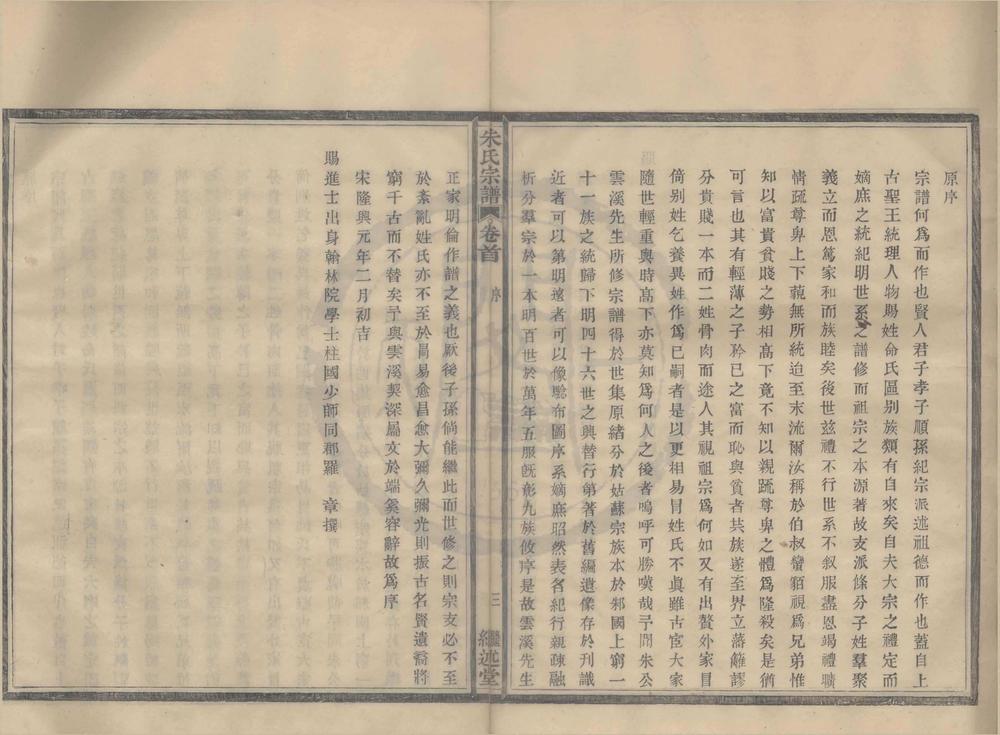 原序
宗譜何爲而作也賢人君子孝子順孫紀宗派述祖德而作也蓋自上
古聖王統理人物賜姓命氏區别族類有自來矣自夫大宗之禮定而
嫡庶之統紀明世系之譜修而祖宗之本源著故支派條分子姓羣聚
義立而恩篤家和而族睦矣後世玆禮不行世系不叙服盡恩竭禮隳
情疏尊卑上下藐無所統迫至末流爾汝稱於伯叔蠻貊視爲兄弟惟
知以富貴貧賤之勢相高下竟不知以親疏尊卑之體爲隆殺矣是猶
可言也其有輕薄之子矜已之富而恥與貧者共族遂至界立藩籬謬
分貴賤一本而二姓骨肉而途人其視祖宗爲何如又有出贅外家冒
倚别姓乞養異姓作爲已嗣者是以更相易冒姓氏不眞雖古宦大家
隨世輕重與時高下亦莫知爲何人之後者嗚呼可勝嘆哉予閒朱公
雲溪先生所修宗譜得於世集原緒分於姑蘇宗族本於邾國上窮一
十一族之統歸下明四十六世之興替行第著於舊編遺像存於刋識
近者可以第明遠者可以像騐布圖序系嫡庶昭然表名紀行親疎融
析分羣宗於一本明百世於萬年五服旣彰九族攸序是故雲溪先生
朱氏宗譜
卷首
序
三
繼述堂
正家明倫作譜之義也厥後子孫倘能繼此而世修之則宗支必不至
於紊亂姓氏亦不至於冐易愈昌愈大彌久彌光則振古名賢遺裔將
窮千古而不替矣予與雲溪契深屬文於端奚容辭故爲序
宋隆興元年二月初吉
賜進士出身翰林院學士柱國少師同郡羅　章撰